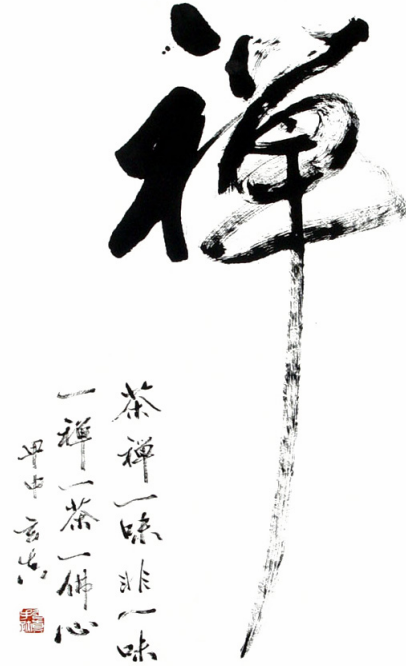 禅
茶禅一味非一味
一禅一茶一佛心
甲申